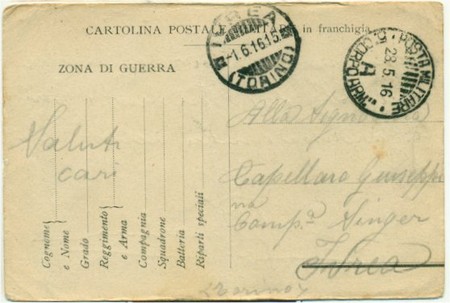 CARTOLINA POSTALE MILITARE in franchigia
ZONA DI GUERRA
IVREA
1.6.16.15
(TORINO)
POSTA MILITARE
23.5.16
A
5. CORPO ARM.
Saluti
cari
Alla Signorina
Capellaro Giuseppina
Comp.a Singer
Ivrea
(Torino)
Cognome e Nome
Grado
Reggimento e Arma
Compagnia
Squadrone
Batteria
Riparti speciali